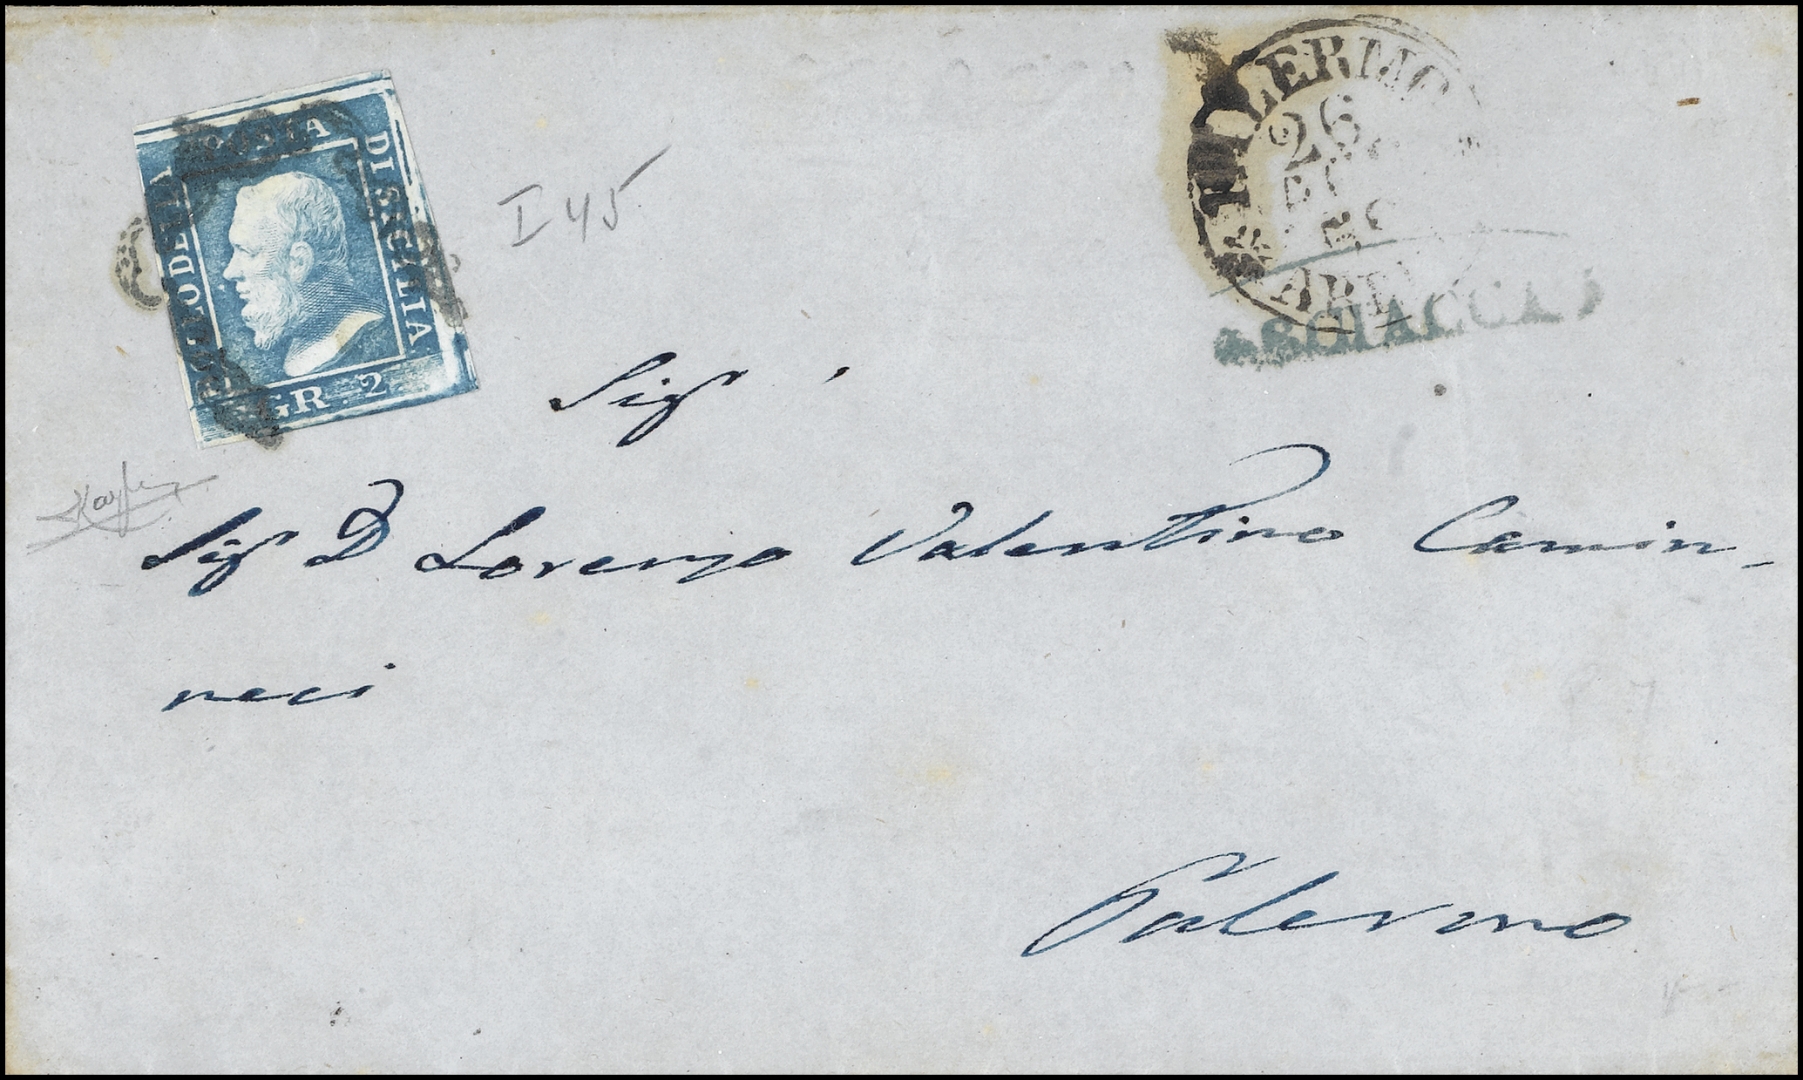 BOLLO DELLA POSTA DI SICILIA
GR. 2
I 45
PALERMO
26
ARRIVO
SCIACCA
Sigr
Sigr D Lorenzo Valentino Camin-
neci
Palermo